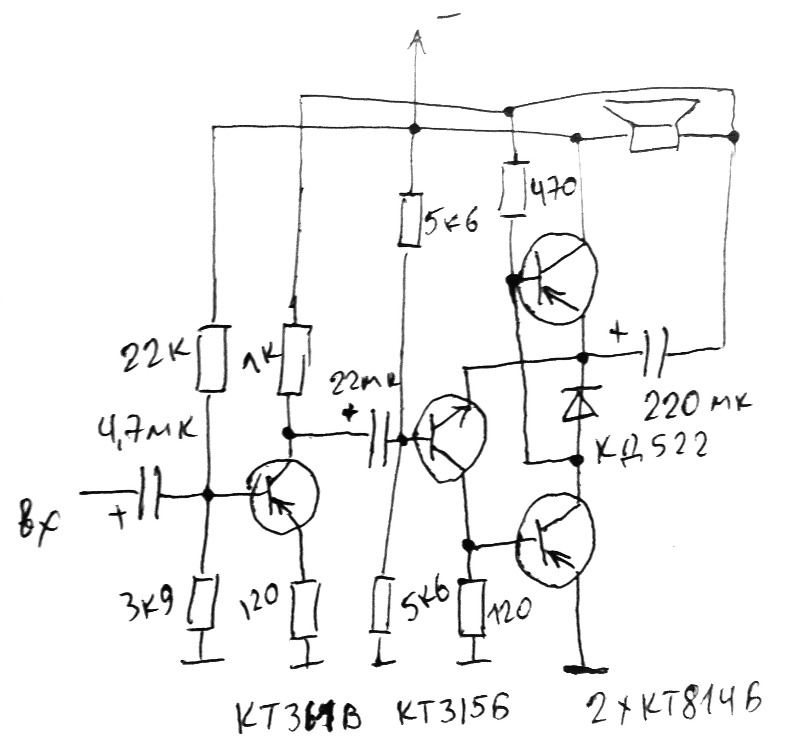 −
470
5к6
22к
1к
22мк
+
+
220 мк
4,7мк
КД522
+
вх
3к9
120
5к6
120
КТ361В КТ315Б
2хКТ814Б